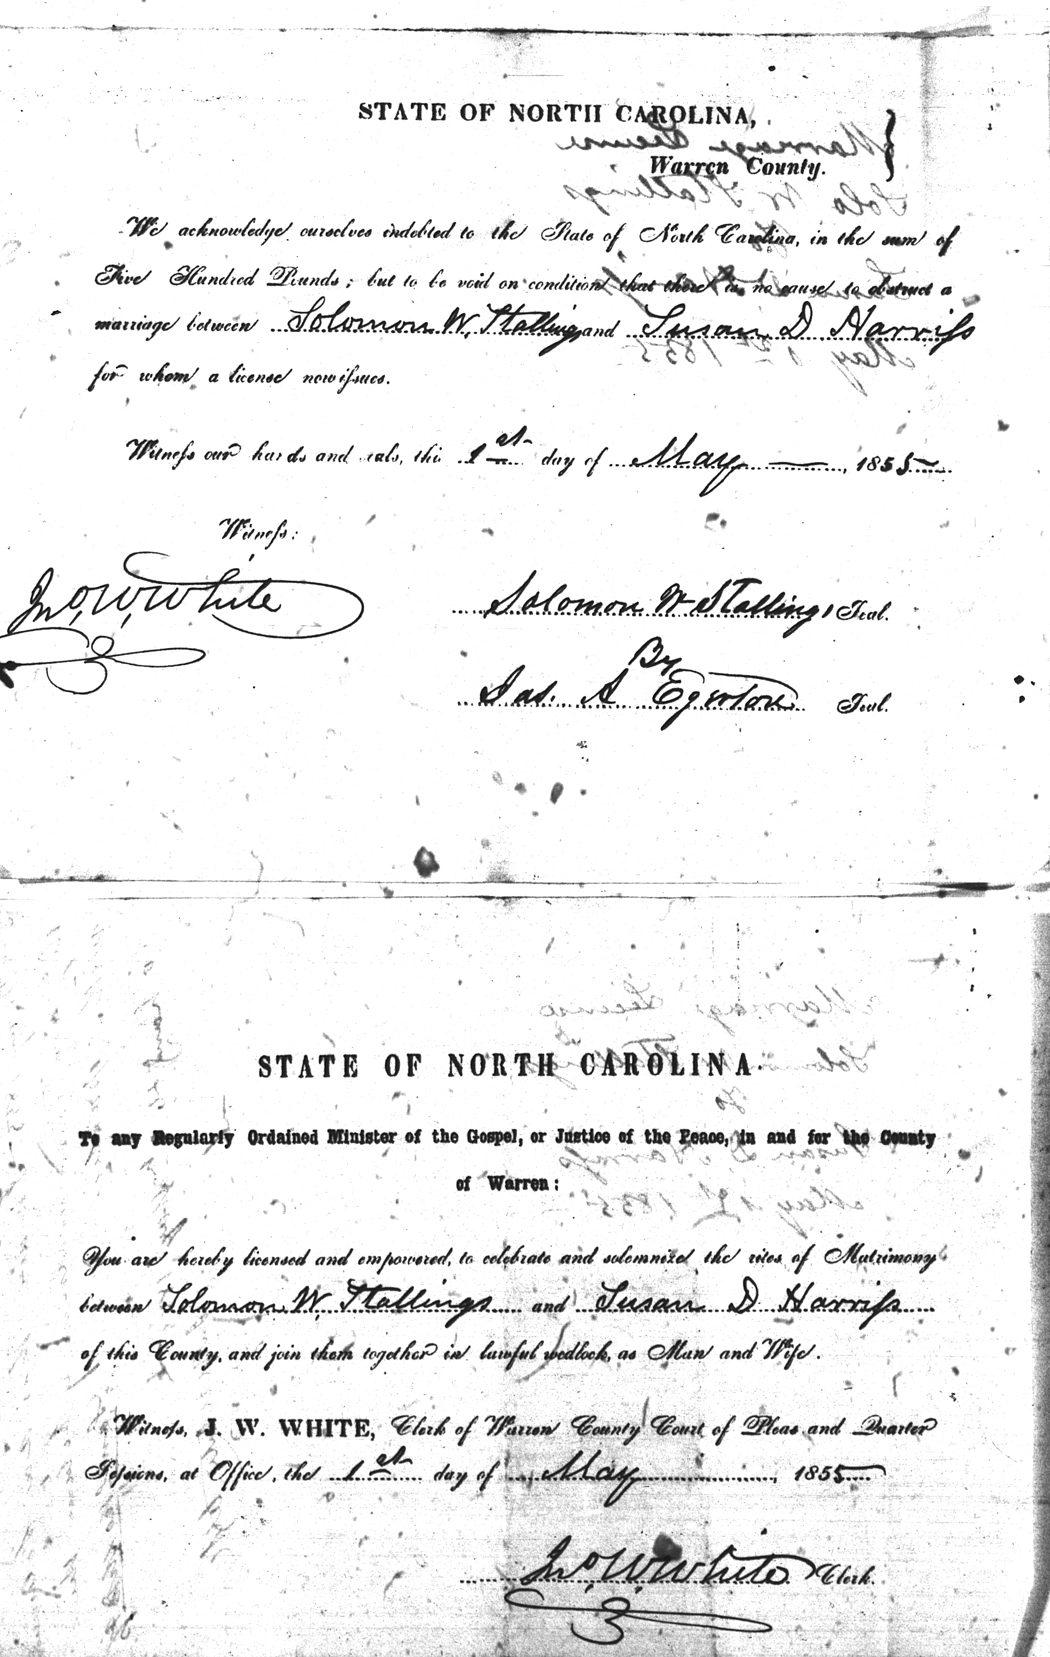 STATE OF NORTH CAROLINA,
Warren County.
We acknowledge ourselves indebted to the State of North Carolina, in the sum of
Five Hundred Pounds; but to be void on condition that there is no cause to obstruct a
marriage between Solomon W. Stallings and Susan D Harriss
for whom a license now issues.
Witness our hands and seals, this 1st day of May 1855
Witness:
Jno. W. White
Solomon W Stallings Seal.
By
Jas. A Egerton Seal.
STATE OF NORTH CAROLINA.
To any Regularly Ordained Minister of the Gospel, or Justice of the Peace, in and for the County
of Warren:
You are hereby licensed and empowered, to celebrate and solemnize the rites of Matrimony
between Solomon W. Stallings and Susan D Harriss
of this County, and join them together in lawful wedlock, as Man and Wife.
Witness, J. W. WHITE, Clerk of Warren County Court of Pleas and Quarter
Sessions, at Office, the 1st day of May, 1855
Jno. W. White Clerk.